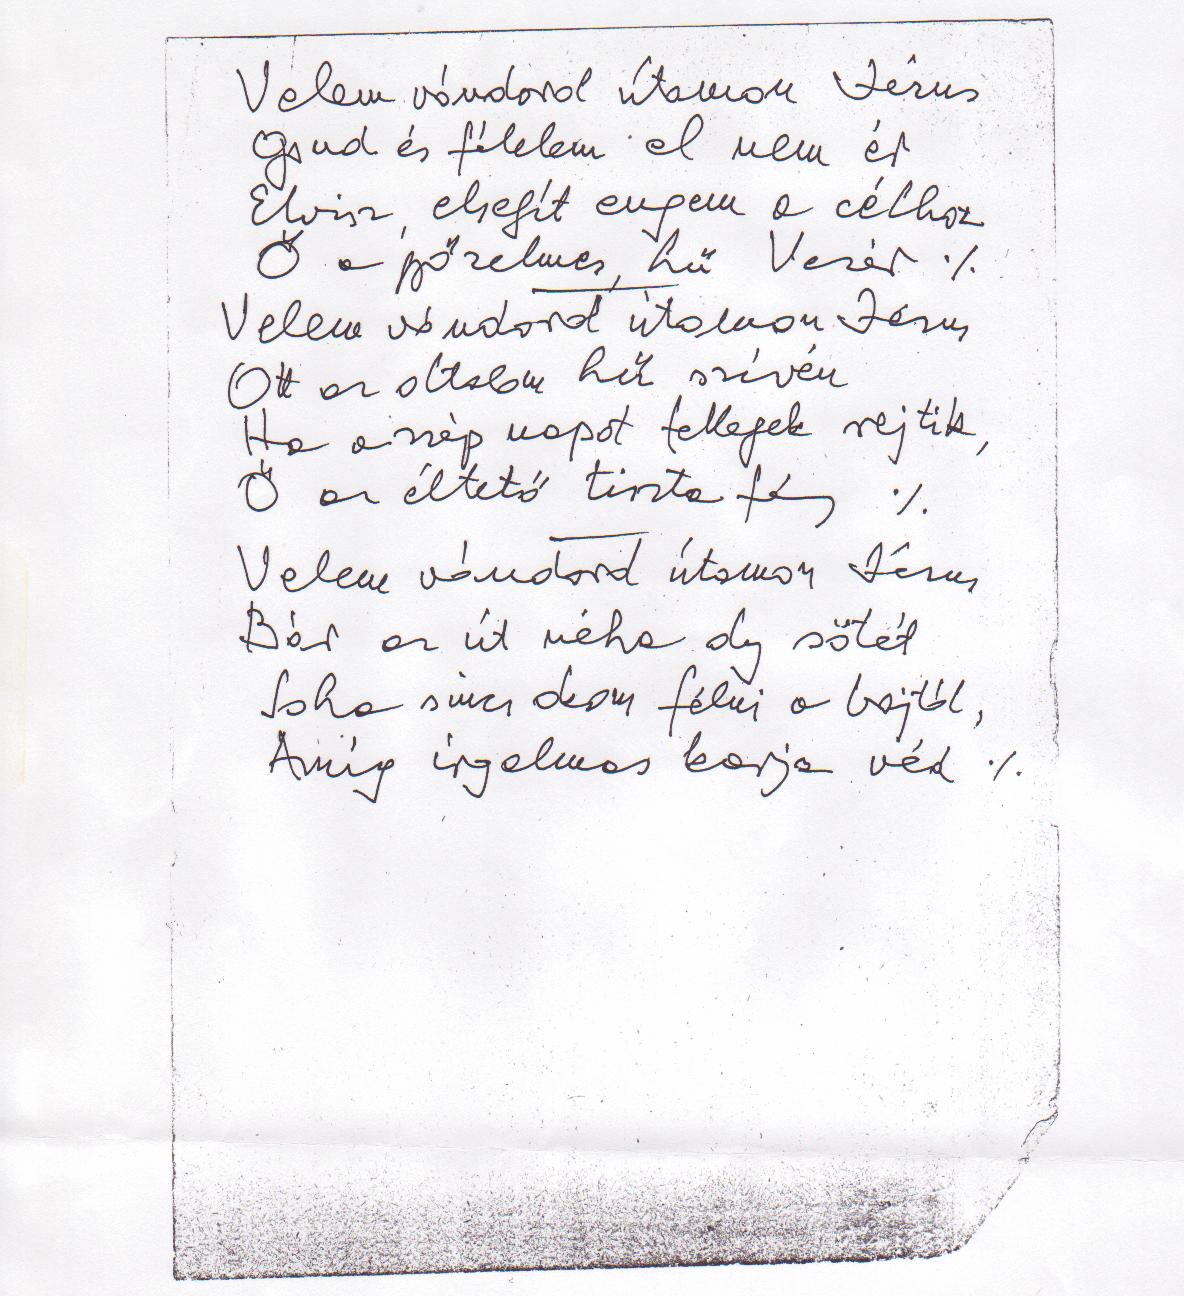 Velem vándorol útamon Jézus
Gond és félelem el nem ér
Elvisz, elsegít engem a célhoz
Ő a győzelmes, hű Vezér ./.
Velem vándorol útamon Jézus
Ott az oltalom hű szívén
Ha a szép napot fellegek rejtik,
Ő az éltető tiszta fény ./.
Velem vándorol útamon Jézus
Bár az út néha oly sötét
Soha sincs okom félni a bajtól,
Amíg irgalmas karja véd ./.